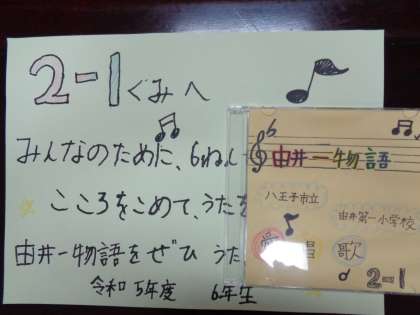 2-1ぐみへ
みんなのために、6ねん
こころをこめて、うたを
由井一物語をぜひ うた
令和5年度 6年生
由井一物語
八王子市立
由井第一小学校
愛唱歌
2-1